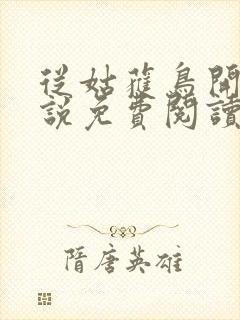 從姑蘿鳥開
說免費閱讀
隋唐英雄